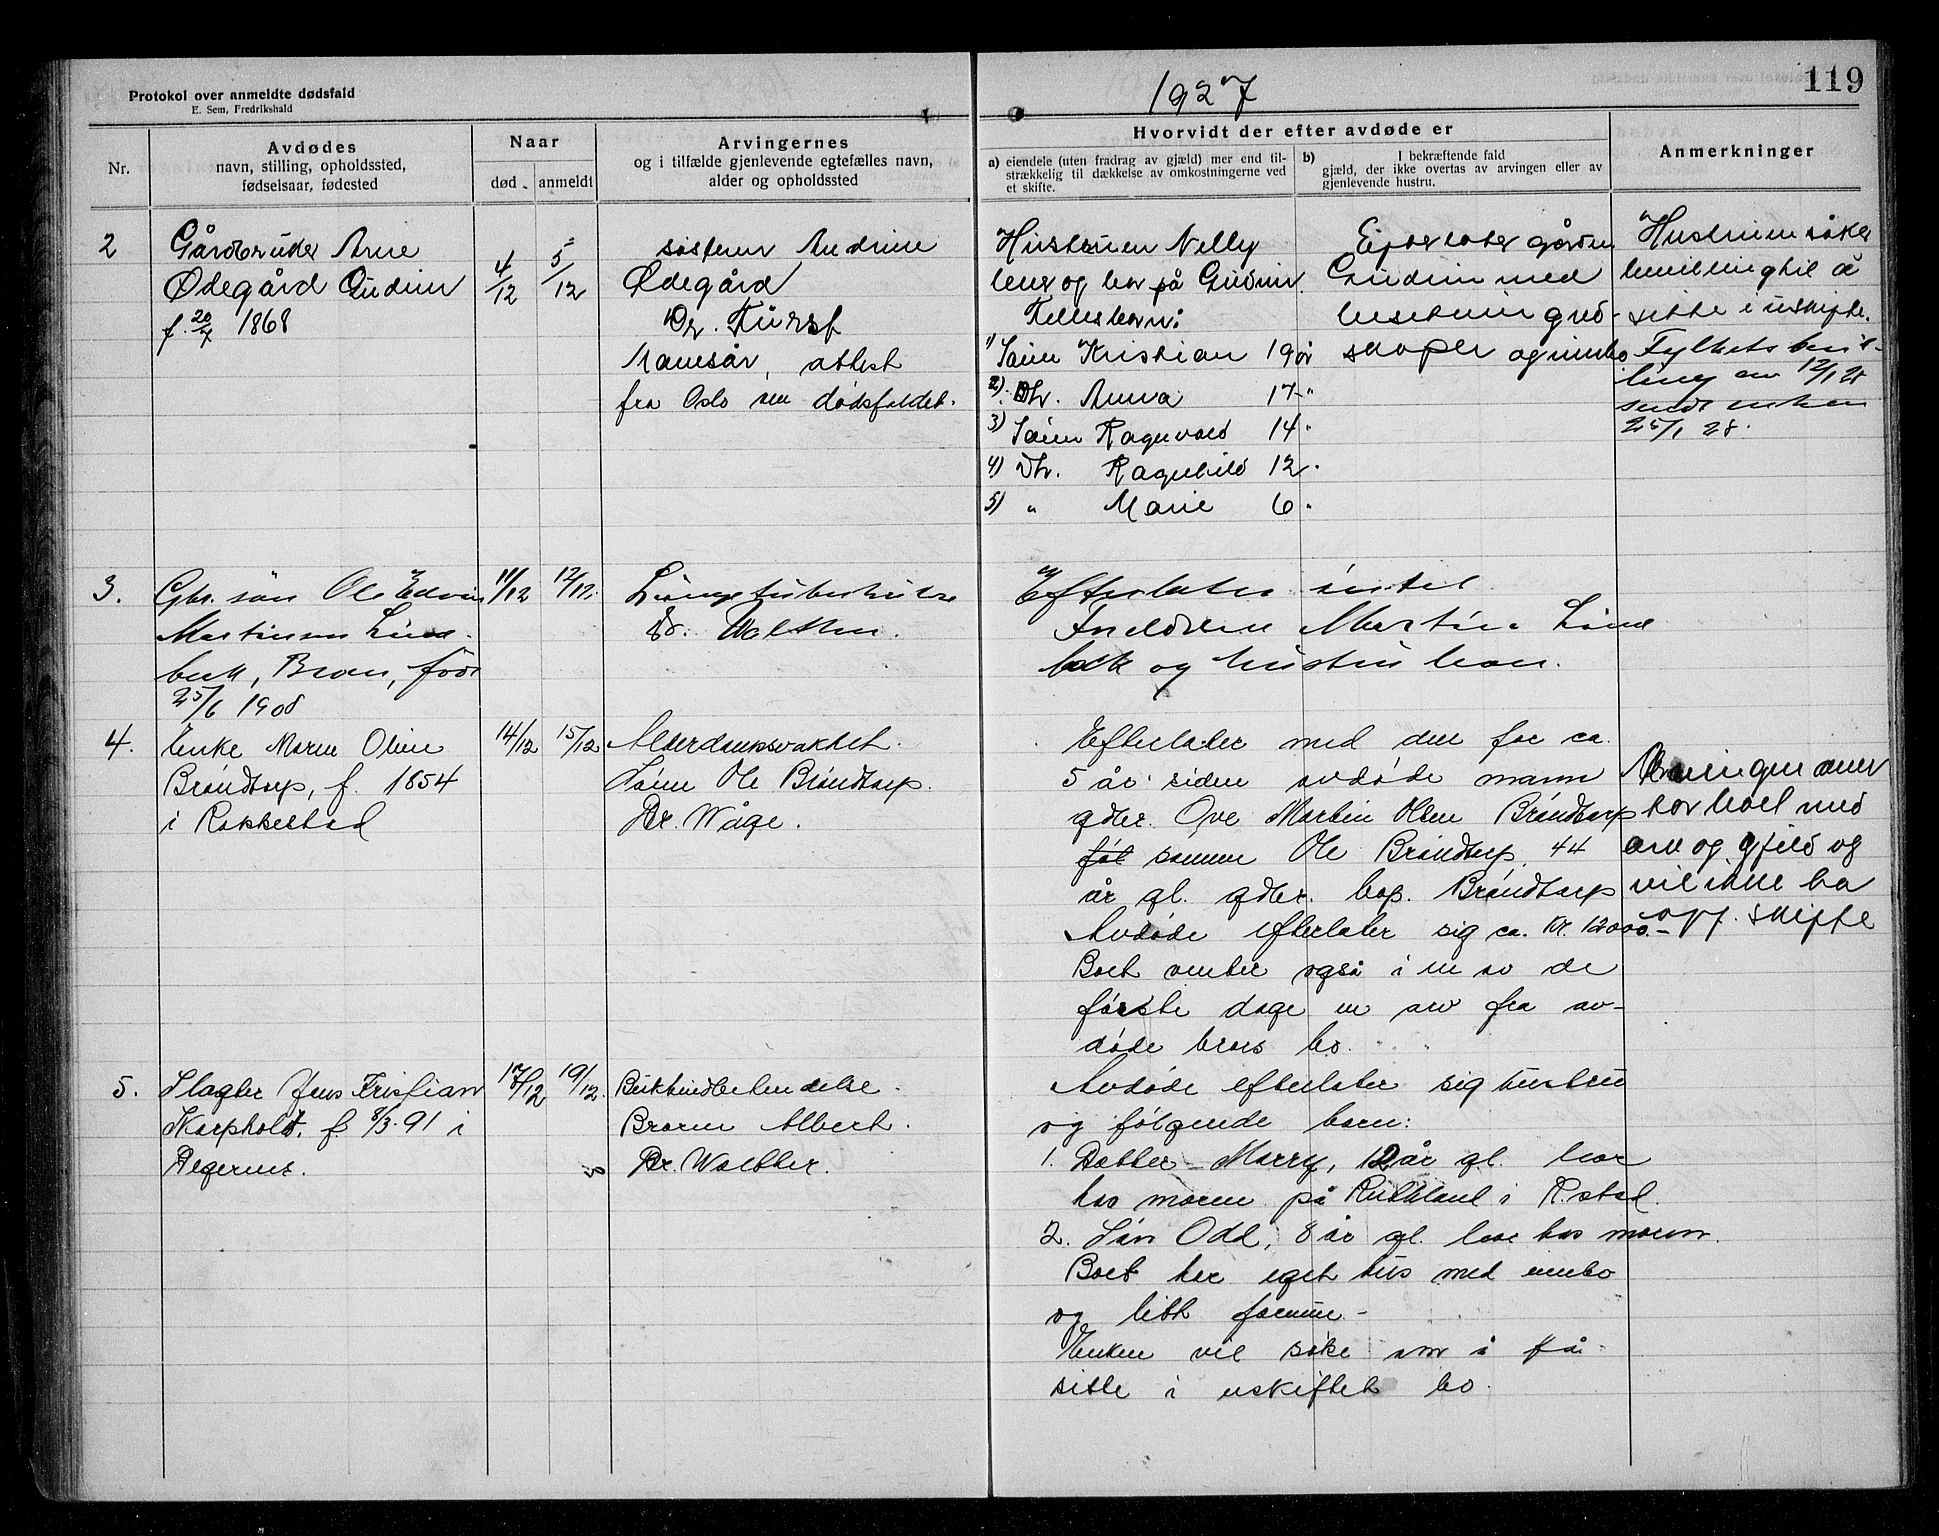 Protokol over anmeldte dødsfald
E. Sem, Fredrikshald
1927
119
Nr.
Avdødes
navn, stilling, opholdssted,
fødselsaar, fødested
Naar
død
anmeldt
Arvingernes
og i tilfælde gjenlevende egtefælles navn,
alder og opholdssted
Hvorvidt der efter avdøde er
a) eiendele (uten fradrag av gjæld) mer end til-
strækkelig til dækkelse av omkostningerne ved
et skifte.
b) I bekræftende fald
gjæld, der ikke overtas av arvingen eller av
gjenlevende hustru.
Anmerkninger
2
Gårdbruker Arne
Ødegård Gudim
f. 20/7 1868
4/12
5/12
søsteren Andrine
Ødegård
Dr. Fürst
attest
fra Oslo om dødsfaldet.
Hustruen Nelly
lever og bor på Gudim.
Fellesbarn:
1) Sønn Kristian 19 år
2) Dtr. Anna 17 "
3) Sønn Ragnvald 14 "
4) Dtr. Ragnhild 12 "
5) " Marie 6 "
Efterlater gården
Gudim med
besetning red-
skaper og innbo
Hustruen søker
bevilling til å
sitte i uskifte.
Fylkets bevil-
ling av 12/1 28
sendt enken
25/1 28.
3.
Gbr. søn Ole Edvin
Martinsen Linne-
bekk, Braar, født
25/6 1908
11/12
12/12
Lungetuberkulose
Dr. Walther.
Efterlater intet
Foreldrene Martin Linne
bekk og hustru lever.
4.
Enke Maren Oline
Brøndtorp, f. 1854
i Rakkestad
14/12
15/12
Alderdomsvakhet.
Sønn Ole Brøndtorp.
Dr. Wåge.
Efterlater med den for ca.
5 år siden avdøde mann
gdbr. Ove Martin Olsen Brøndtorp
sønnen Ole Brøndtorp, 44
år gl. gdbr. bop. Brøndtorp
Avdøde efterlater sig ca. Kr. 12000.-
Boet venter også i en av de
første dage en arv fra av-
døde brors bo.
Arvingen overtar boet med
arv og gjeld og
vil ikke ha
off. skifte
5.
Slagter Jens Kristian
Skarpholt, f. 8/3-91 i
Degernes.
17/12
19/12.
Bukhindbetendelse.
Broren Albert.
Dr. Walther.
Avdøde efterlater sig hustru
og følgende barn:
1. Datter Marry, 12 år gl. bor
hos moren på i R.stad.
2. Søn Odd, 8 år gl. bor hos moren.
Boet har eget hus med innbo
og litt formue.-
Enken vil søke om å få
sitte i uskiftet bo.